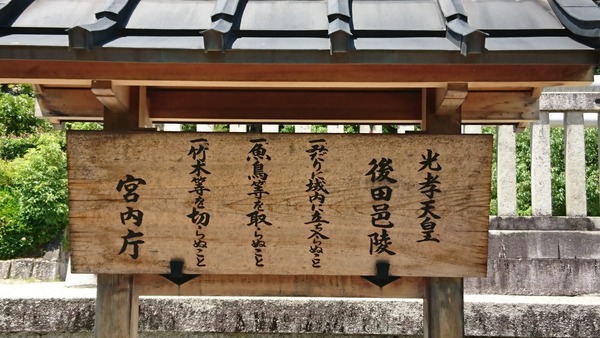 光孝天皇
後田邑陵
一みだりに域内に立ち入らぬこと
一魚鳥等を取らぬこと
一竹木等を切らぬこと
宮内庁